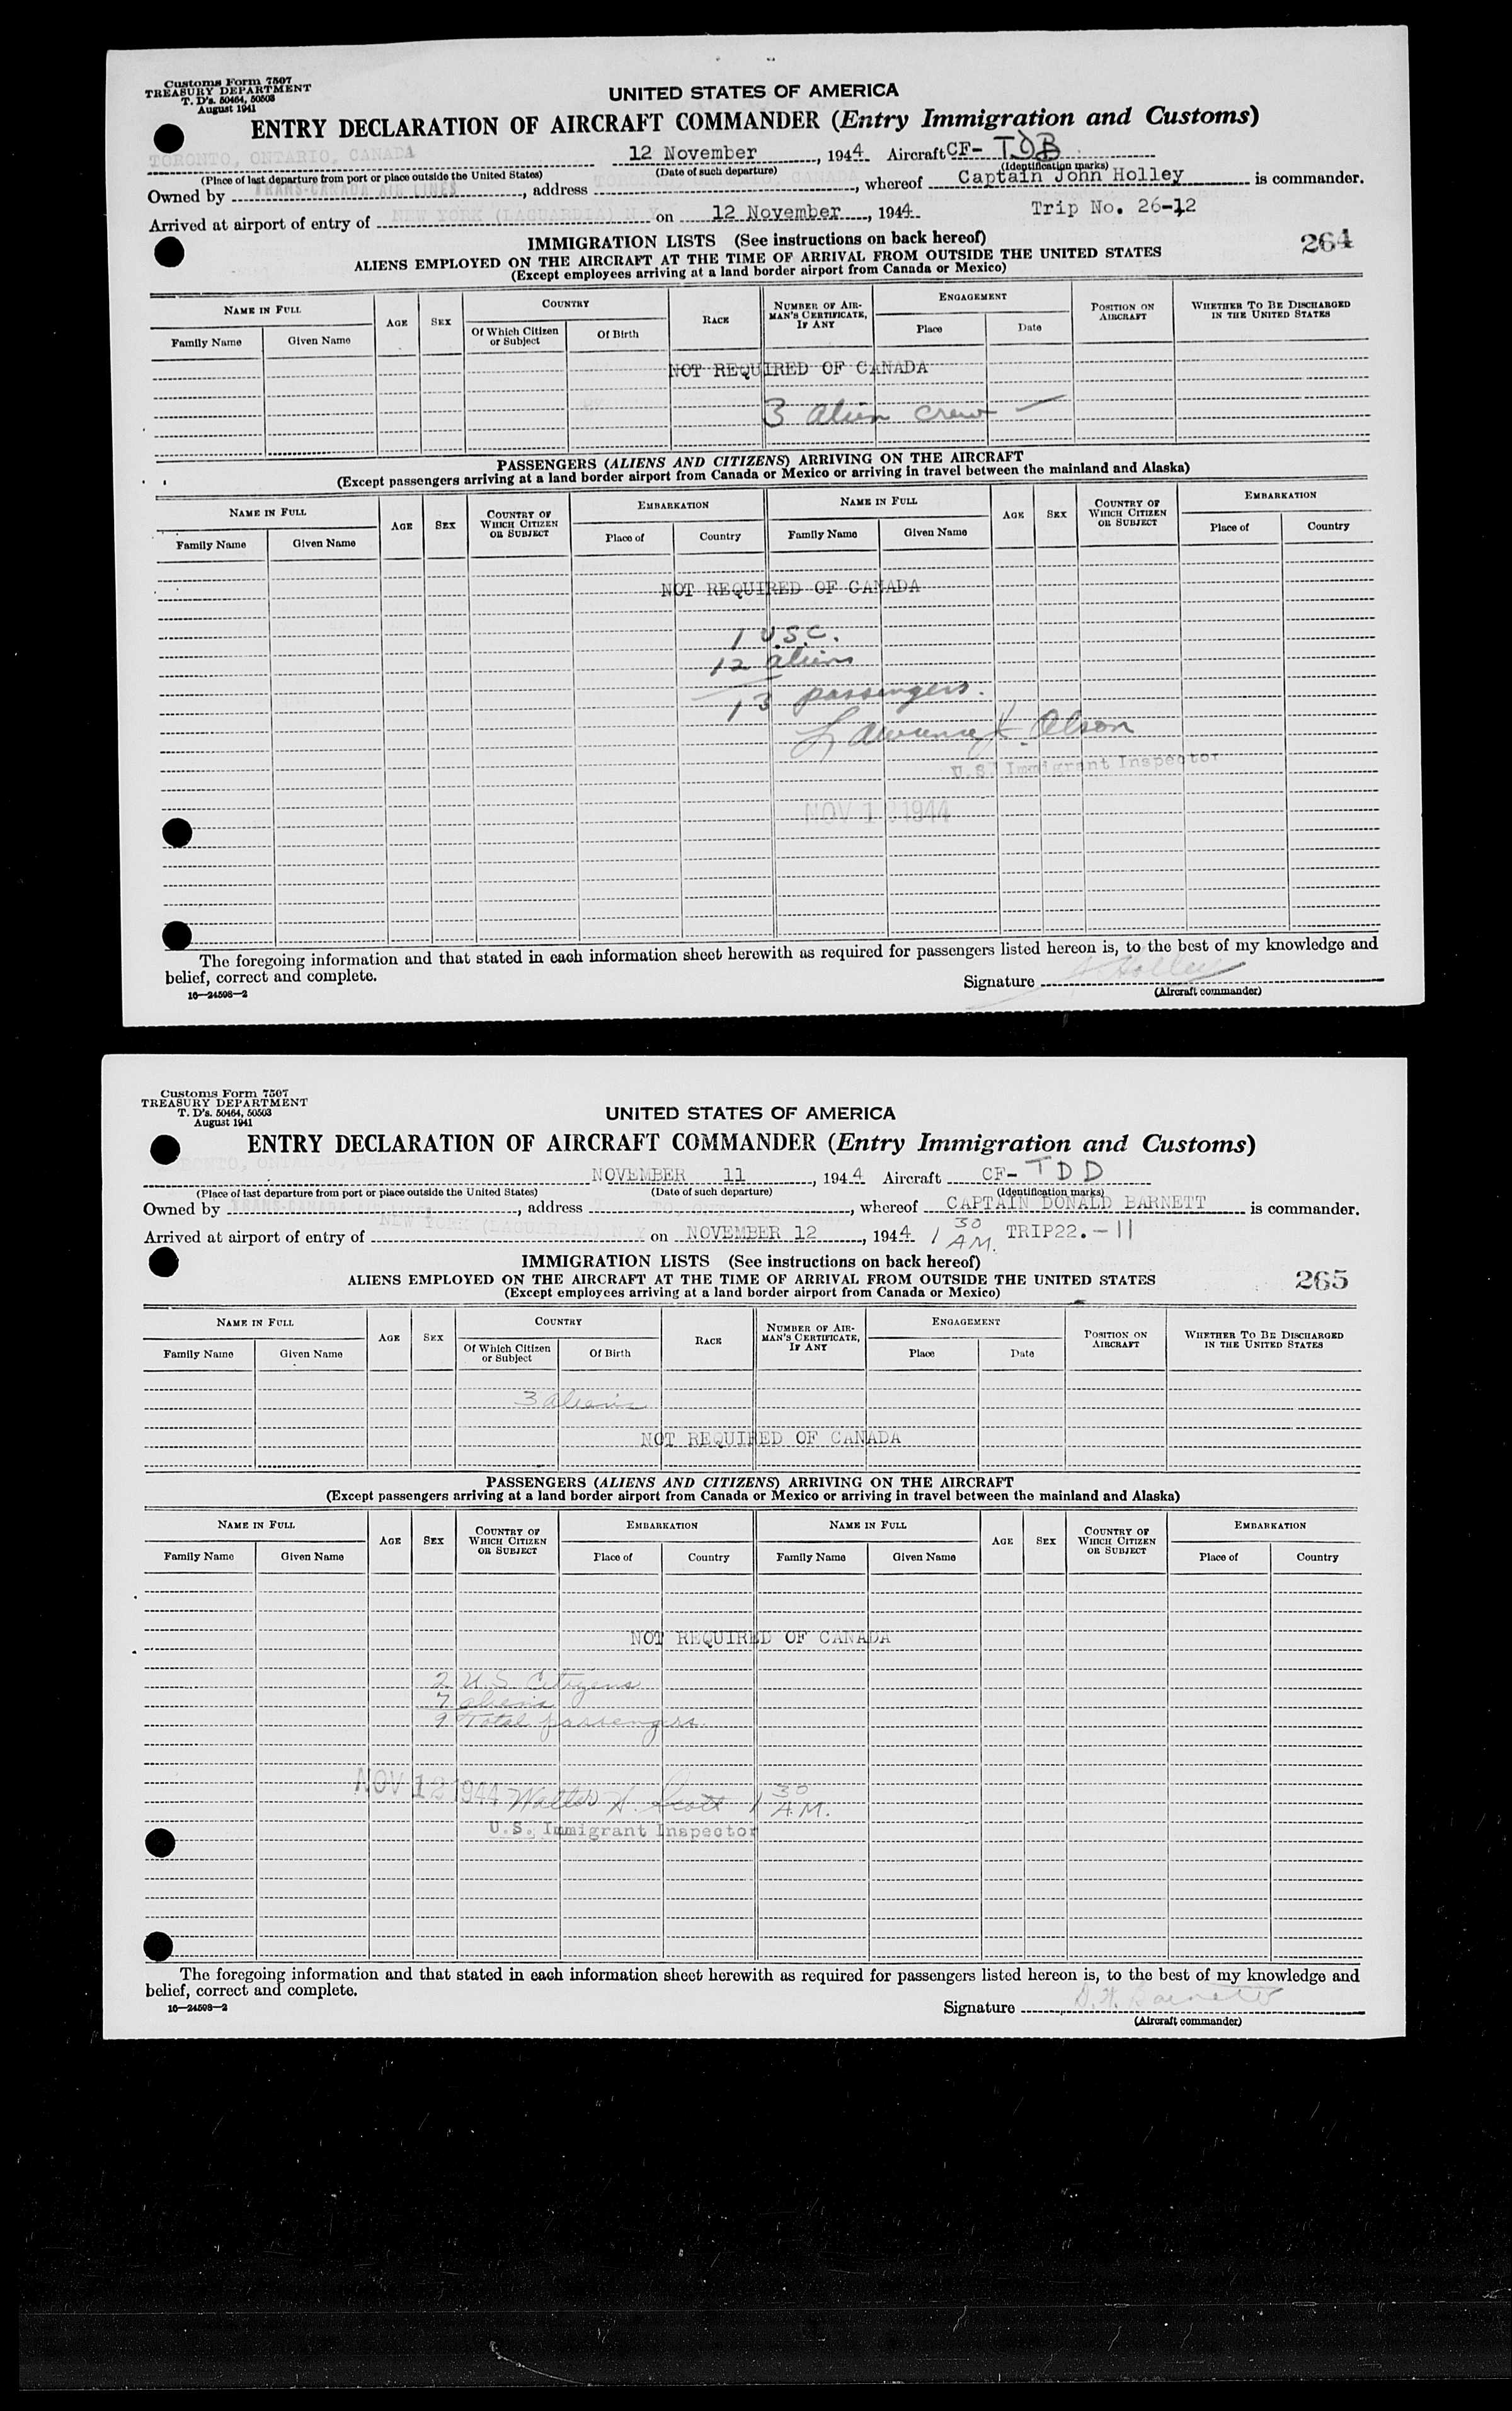 Customs Form 7507
TREASURY DEPARTMENT
T. D's. 50464, 50503
August 1941
UNITED STATES OF AMERICA
ENTRY DECLARATION OF AIRCRAFT COMMANDER (Entry Immigration and Customs)
TORONTO, ONTARIO, CANADA 12 November, 1944 Aircraft CF- TDB
(Place of last departure from port or place outside the United States) (Date of such departure) (Identification marks)
Owned by TRANS-CANADA AIR LINES, address TORONTO, ONTARIO, CANADA, whereof Captain John Holley is commander.
Arrived at airport of entry of NEW YORK (LAGUARDIA) N Y on 12 November, 1944. Trip No. 26-12
IMMIGRATION LISTS (See instructions on back hereof)
264
ALIENS EMPLOYED ON THE AIRCRAFT AT THE TIME OF ARRIVAL FROM OUTSIDE THE UNITED STATES
(Except employees arriving at a land border airport from Canada or Mexico)
NAME IN FULL AGE SEX COUNTRY RACE NUMBER OF AIRMAN'S CERTIFICATE, IF ANY ENGAGEMENT POSITION ON AIRCRAFT WHETHER TO BE DISCHARGED IN THE UNITED STATES
Family Name Given Name Of Which Citizen or Subject Of Birth Place Date
NOT REQUIRED OF CANADA
3 alien crew
PASSENGERS (ALIENS AND CITIZENS) ARRIVING ON THE AIRCRAFT
(Except passengers arriving at a land border airport from Canada or Mexico or arriving in travel between the mainland and Alaska)
NAME IN FULL AGE SEX COUNTRY OF WHICH CITIZEN OR SUBJECT EMBARKATION NAME IN FULL AGE SEX COUNTRY OF WHICH CITIZEN OR SUBJECT EMBARKATION
Family Name Given Name Place of Country Family Name Given Name Place of Country
NOT REQUIRED OF CANADA
1 U.S.C.
12 aliens
13 passengers.
Lawrence K. Olson
U.S. Immigrant Inspector
NOV 12 1944
The foregoing information and that stated in each information sheet herewith as required for passengers listed hereon is, to the best of my knowledge and
belief, correct and complete.
Signature J Holley
16—24598-2 (Aircraft commander)
Customs Form 7507
TREASURY DEPARTMENT
T. D's. 50464, 50503
August 1941
UNITED STATES OF AMERICA
ENTRY DECLARATION OF AIRCRAFT COMMANDER (Entry Immigration and Customs)
TORONTO, ONTARIO, CANADA NOVEMBER 11, 1944 Aircraft CF- TDD
(Place of last departure from port or place outside the United States) (Date of such departure) (Identification marks)
Owned by TRANS-CANADA AIR LINES, address, whereof CAPTAIN DONALD BARNETT is commander.
Arrived at airport of entry of NEW YORK (LAGUARDIA) N Y on NOVEMBER 12, 1944 1 30 A.M. TRIP22.-11
IMMIGRATION LISTS (See instructions on back hereof)
265
ALIENS EMPLOYED ON THE AIRCRAFT AT THE TIME OF ARRIVAL FROM OUTSIDE THE UNITED STATES
(Except employees arriving at a land border airport from Canada or Mexico)
NAME IN FULL AGE SEX COUNTRY RACE NUMBER OF AIRMAN'S CERTIFICATE, IF ANY ENGAGEMENT POSITION ON AIRCRAFT WHETHER TO BE DISCHARGED IN THE UNITED STATES
Family Name Given Name Of Which Citizen or Subject Of Birth Place Date
3 aliens
NOT REQUIRED OF CANADA
PASSENGERS (ALIENS AND CITIZENS) ARRIVING ON THE AIRCRAFT
(Except passengers arriving at a land border airport from Canada or Mexico or arriving in travel between the mainland and Alaska)
NAME IN FULL AGE SEX COUNTRY OF WHICH CITIZEN OR SUBJECT EMBARKATION NAME IN FULL AGE SEX COUNTRY OF WHICH CITIZEN OR SUBJECT EMBARKATION
Family Name Given Name Place of Country Family Name Given Name Place of Country
NOT REQUIRED OF CANADA
2 U.S Citizens
7 aliens
9 Total passengers.
NOV 12 1944 Walter H. Scott 1 30 A.M.
U.S. Immigrant Inspector
The foregoing information and that stated in each information sheet herewith as required for passengers listed hereon is, to the best of my knowledge and
belief, correct and complete.
Signature D.H. Barnett
16—24598-2 (Aircraft commander)